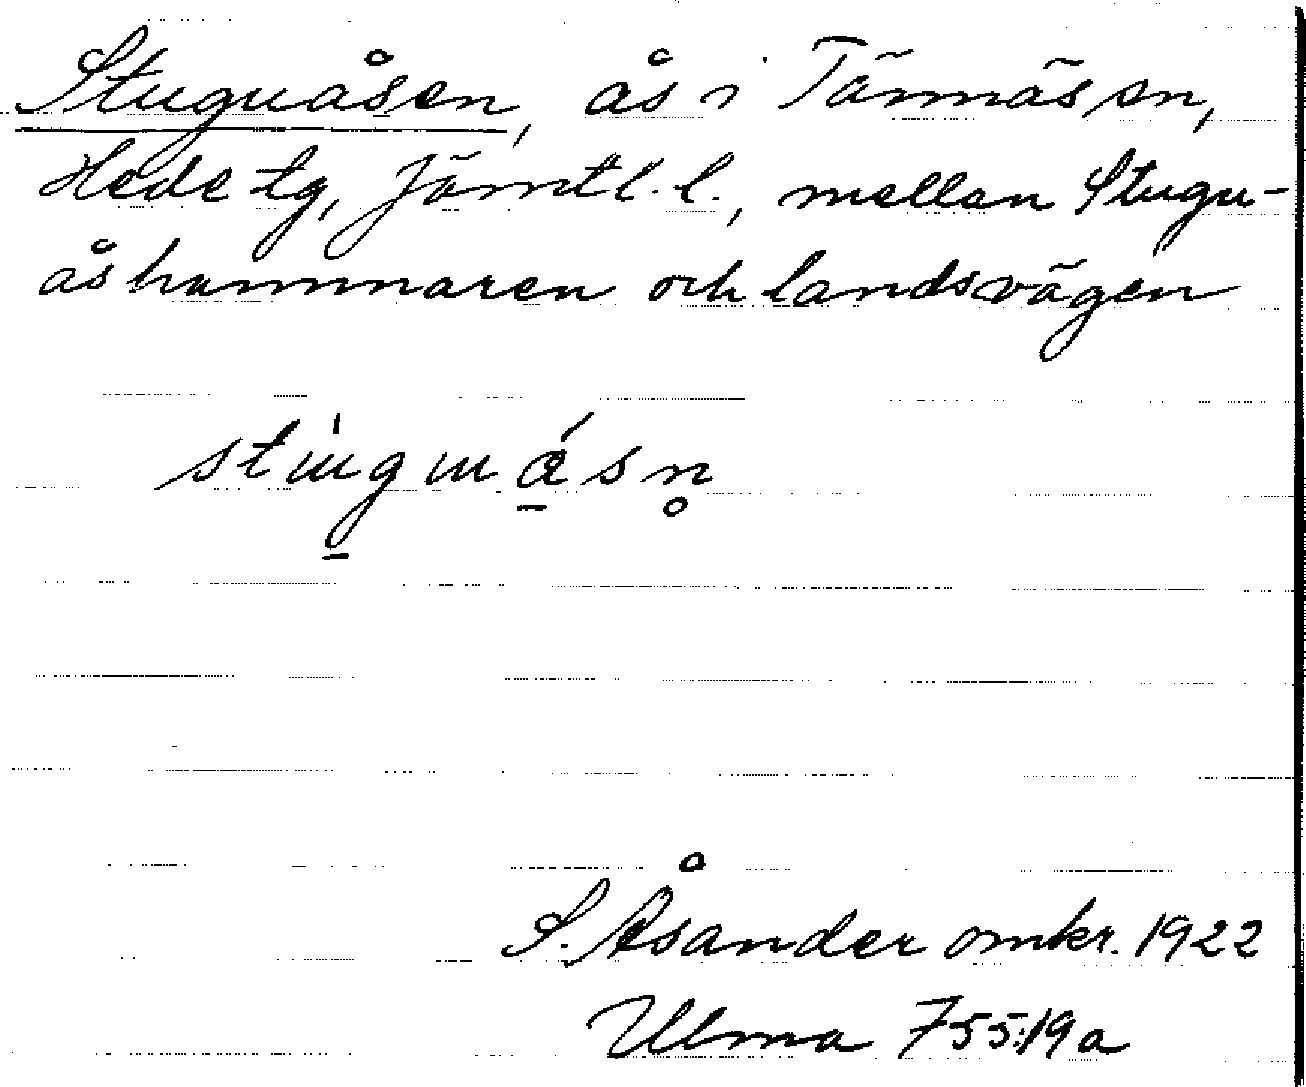 Stuguåsen, ås i Tännäs sn,
Hede tg, Jämtl. l., mellan Stugu-
åshammaren och landsvägen
S. Åsander omkr. 1922
Ulma 755:19a